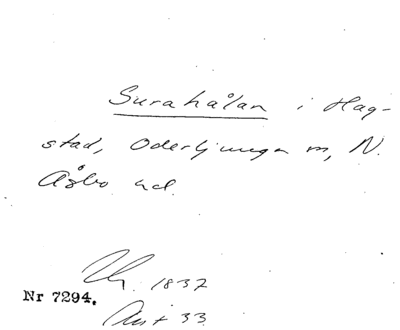 Surahålan i Hag-
stad, Oderljunga sn, N.
Åsbo hd.
1837
Nr 7294.
Akt 33